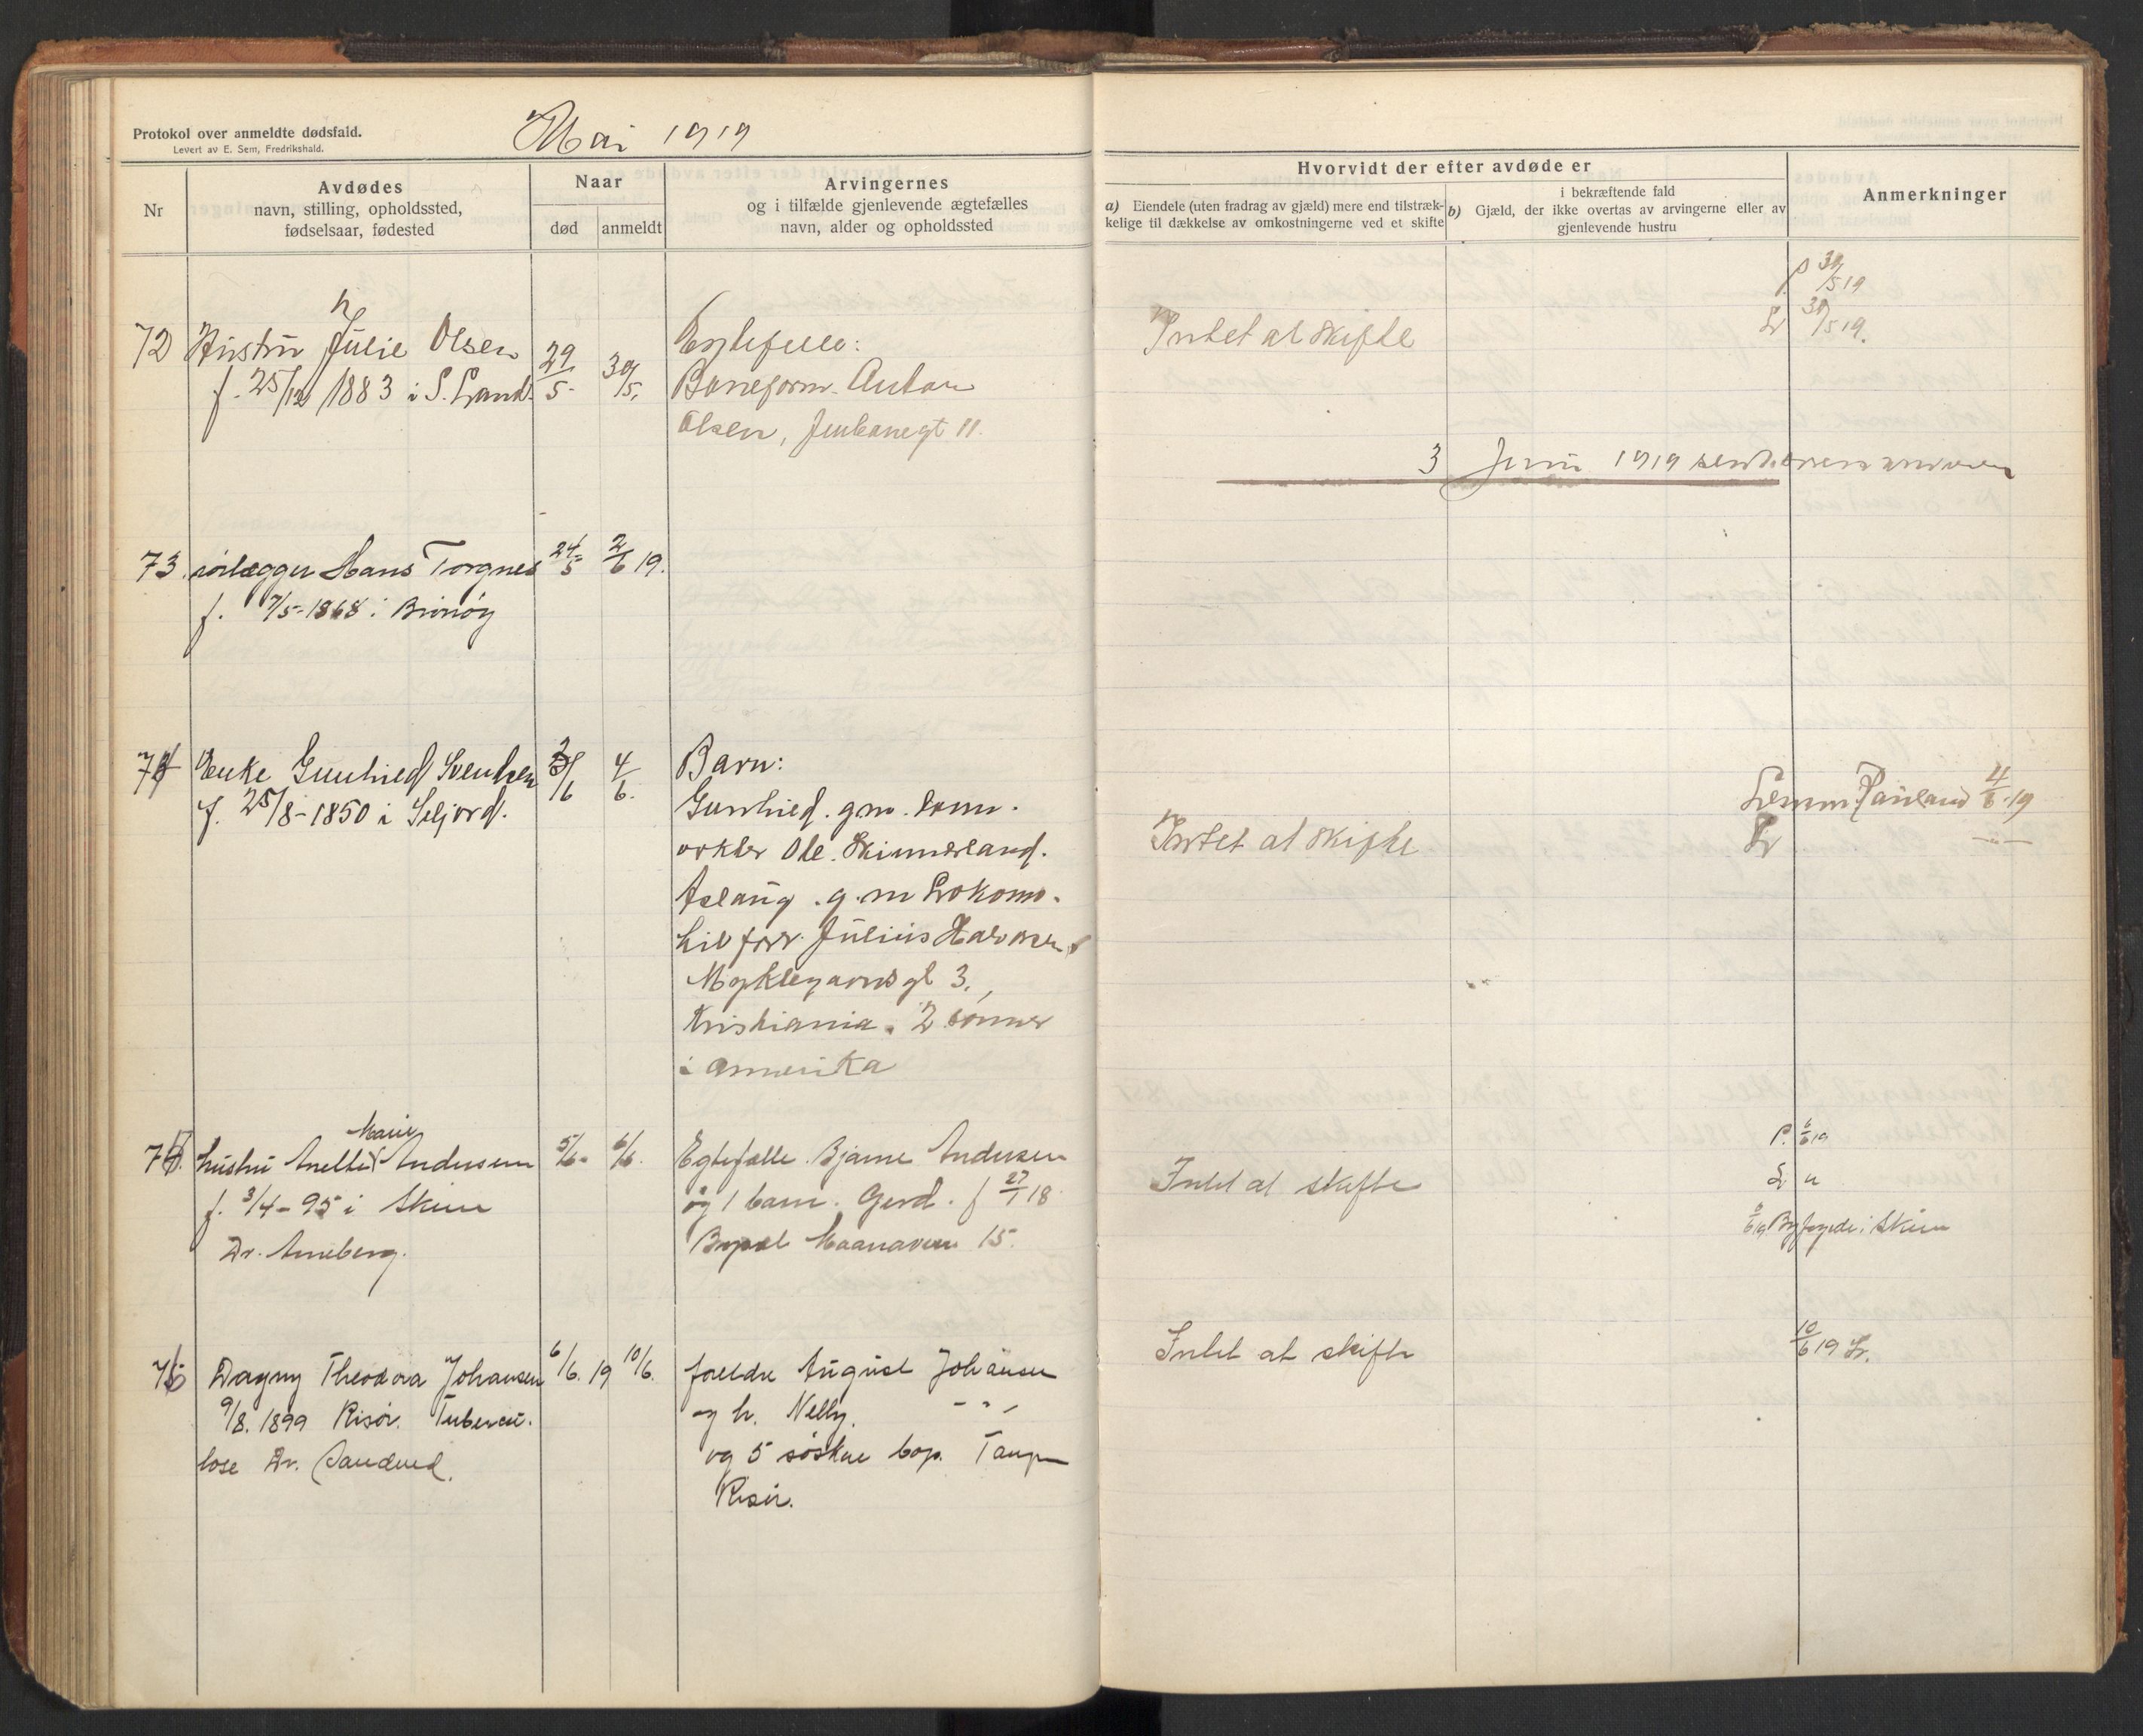 Protokol over anmeldte dødsfald.
Levert av E. Sem, Fredrikshald.
Mai 1919
Nr
Avdødes
navn, stilling, opholdssted,
fødselsaar, fødested
Naar
død
anmeldt
Arvingernes
og i tilfælde gjenlevende ægtefælles
navn, alder og opholdssted
Hvorvidt der efter avdøde er
a) Eiendele (uten fradrag av gjæld) mere end tilstræk-
kelige til dækkelse av omkostningerne ved et skifte
b)
i bekræftende fald
Gjæld, der ikke overtas av arvingerne eller av
gjenlevende hustru
Anmerkninger
72 Hustru Julie Olsen
f. 25/12 1883 i S. Land
29/5 30/5
Egtefelle:
Baneform. Anton
Olsen, Jenbanegt 11.
Intet at skifte
P. 30/5 19
L 30/5 19.
3 Juni 1919
73. rörlægger Hans Torgnes
f. 7/5-1868 i Brönöy
24/5 2/6 19.
74 Enke Gunhild Svendsen
f. 25/8-1850 i Seljord.
/6 4/6.
Barn:
Gunhild. gm.
Ole. Skinnerland.
Aslaug. g. m Lokomo-
tivfører. Julius Halvorsen
Myklegaards gt 3.,
Kristiania. 2 sönner
i Amerika
Intet at skifte
4/6-19
L
75. hustru Anette Marie Andersen
f. 3/4-95 i Skien
Dr. Arneberg.
5/6- 6/6.
Egtefælle Bjarne Andersen
og 1 barn. Gerd. f 27/1 18
Bopæl Maanaveien 15.
Intet at skifte
P. 6/6 19
L "
Byfogden i Skien
76 Dagny Theodora Johansen
9/8. 1899 Risör. Tubercu-
lose Dr. Sandved.
6/6. 19 10/6.
foreldre August Johansen
og h. Nelly. - " -
og 5 söskne bop.
Risör.
Intet at skifte
10/6 19 L.